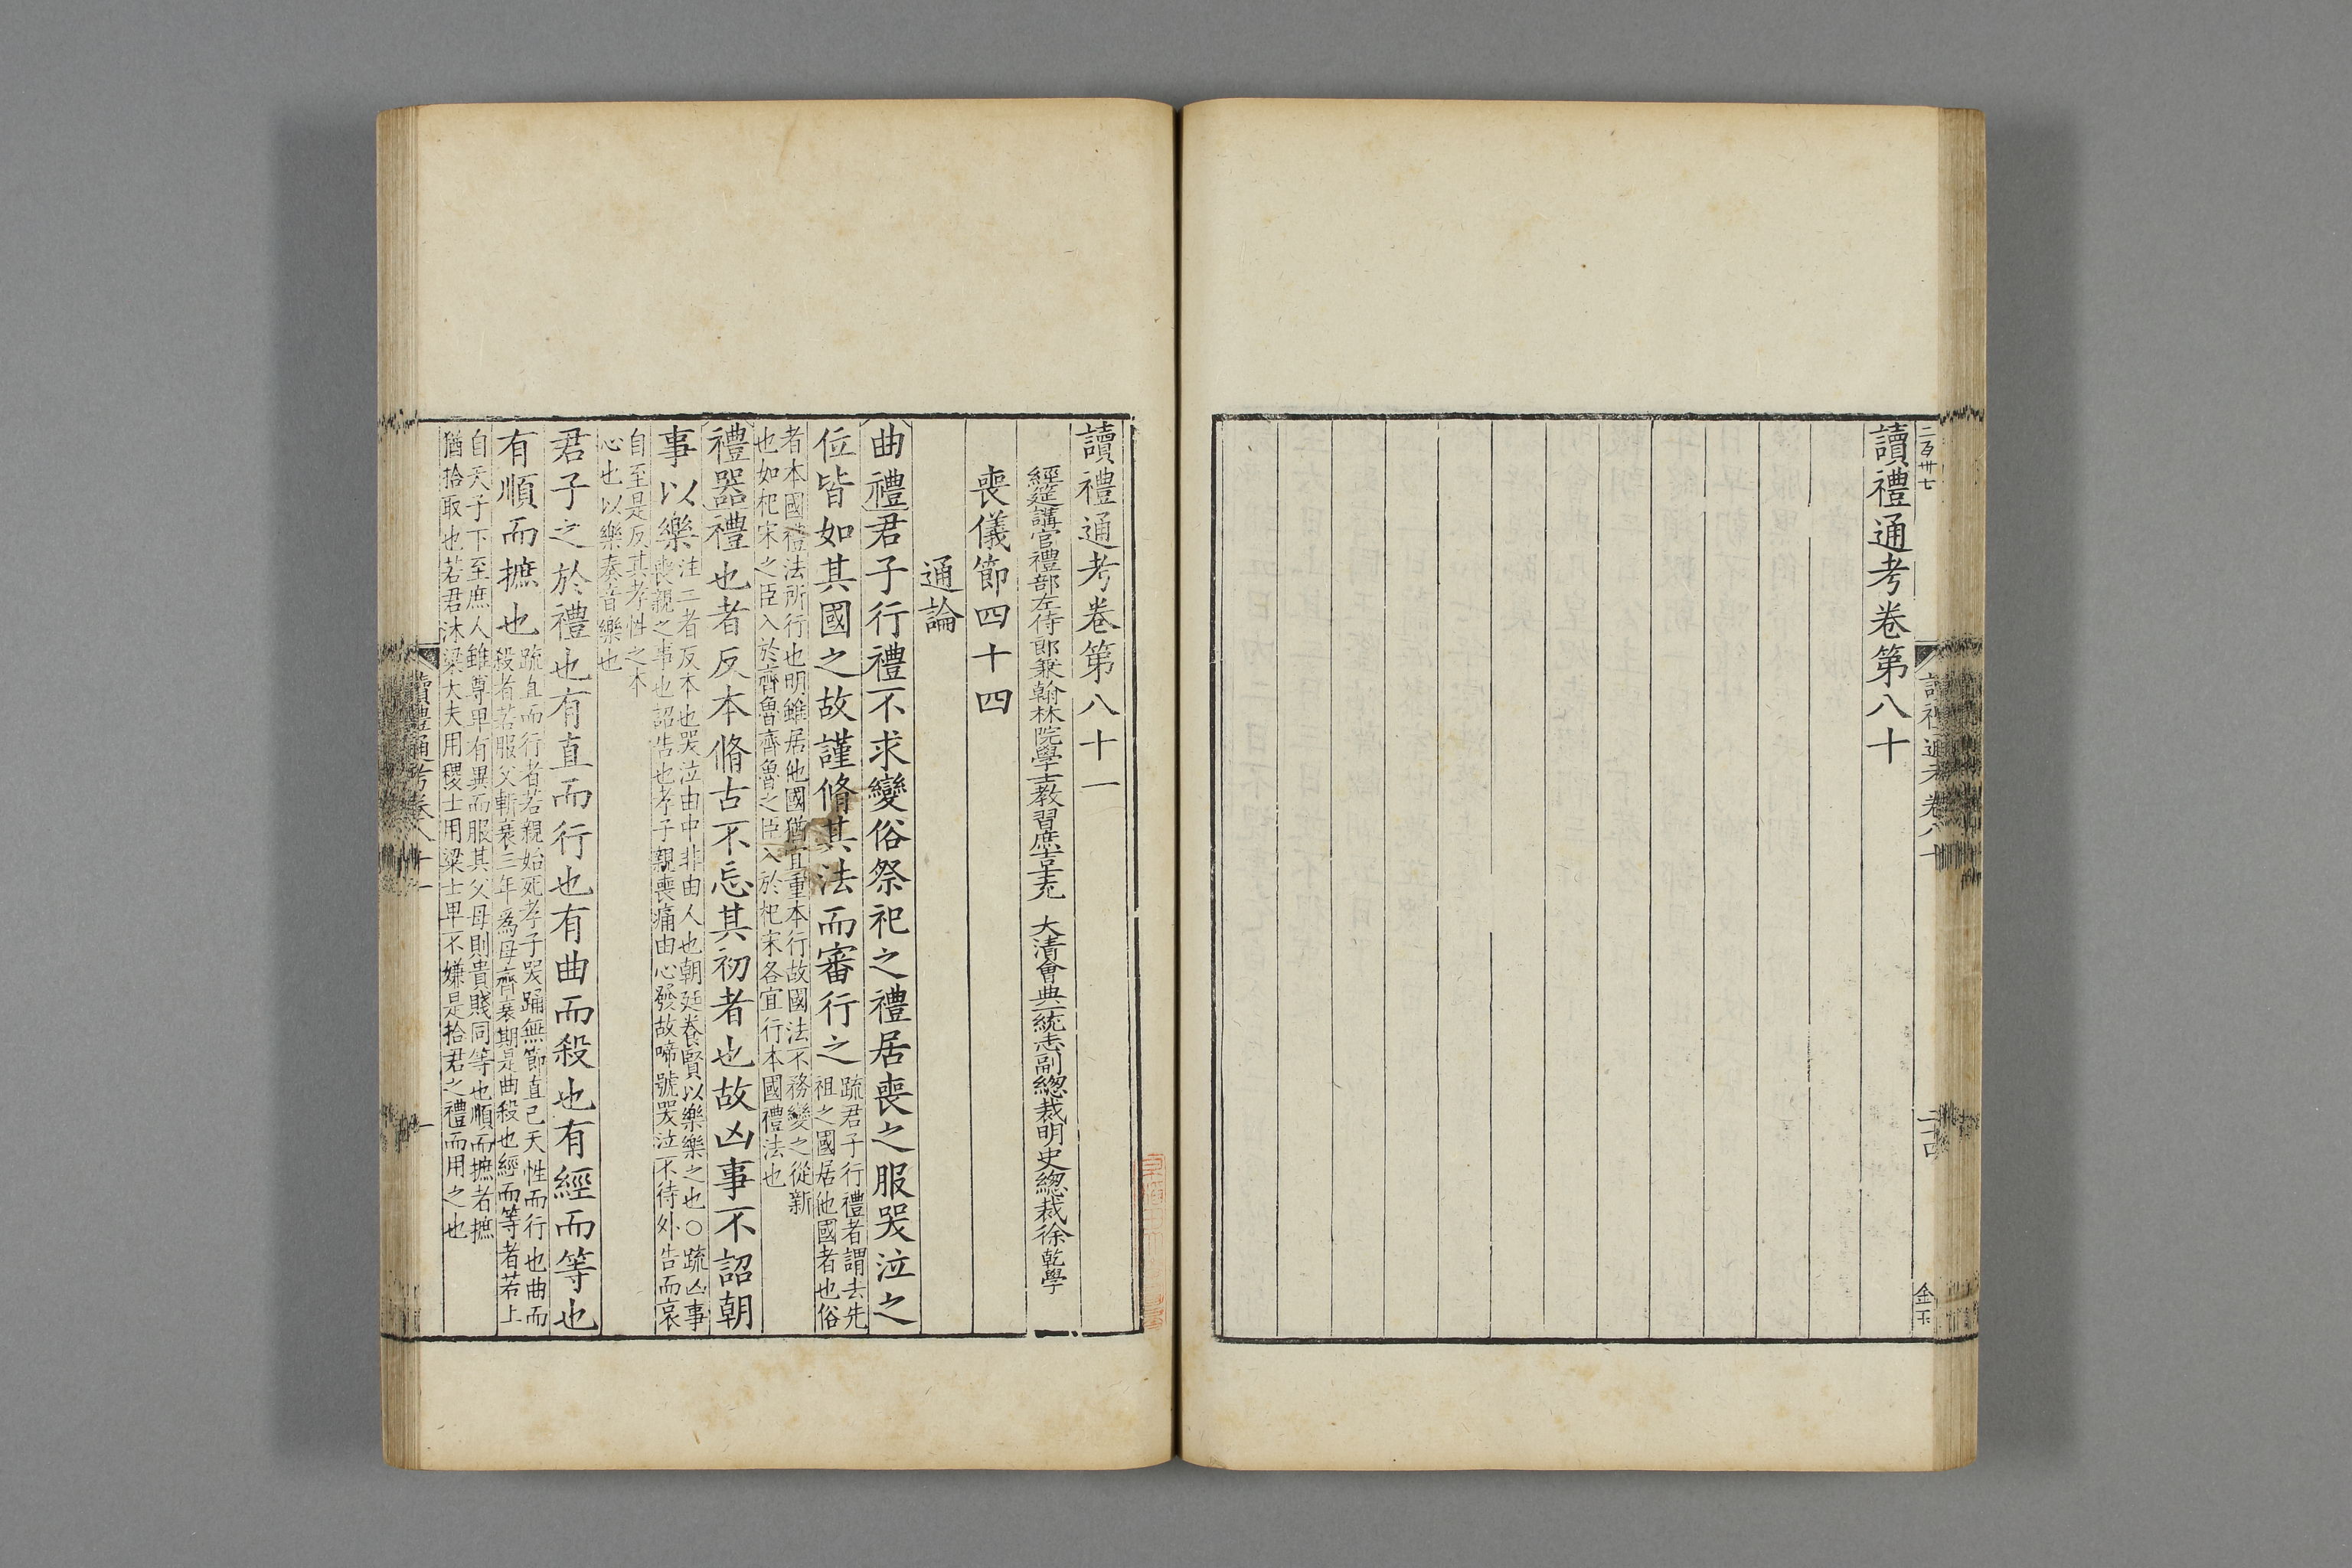 二百卅七
讀禮通考卷第八十
讀禮通考卷八十
二十四
金玉
讀禮通考卷第八十一
經筵講官禮部左侍郎兼翰林院學士教習庶吉士充 大清會典一統志副總裁明史總裁徐乾學
喪儀節四十四
通論
曲禮君子行禮不求變俗祭祀之禮居喪之服哭泣之
位皆如其國之故謹脩其法而審行之疏君子行禮者謂去先
祖之國居他國者也俗
者本國禮法所行也明雖居他國猶宜重本行故國法不務變之從新
也如杞宋之臣入於齊魯齊魯之臣入於杞宋各宜行本國禮法也
禮器禮也者反本脩古不忘其初者也故凶事不詔朝
事以樂注二者反本也哭泣由中非由人也朝廷養賢以樂樂之也○疏凶事
喪親之事也詔告也孝子親喪痛由心發故啼號哭泣不待外告而哀
自至是反其孝性之本
心也以樂奏音樂也
君子之於禮也有直而行也有曲而殺也有經而等也
有順而摭也疏直而行者若親始死孝子哭踊無節直己天性而行也曲而
殺者若服父斬衰三年為母齊衰期是曲殺也經而等者若上
自天子下至庶人雖尊卑有異而服其父母則貴賤同等也順而摭者摭
猶拾取也若君沐粱大夫用稷士用粱士卑不嫌是拾君之禮而用之也
讀禮通考卷八十一
一